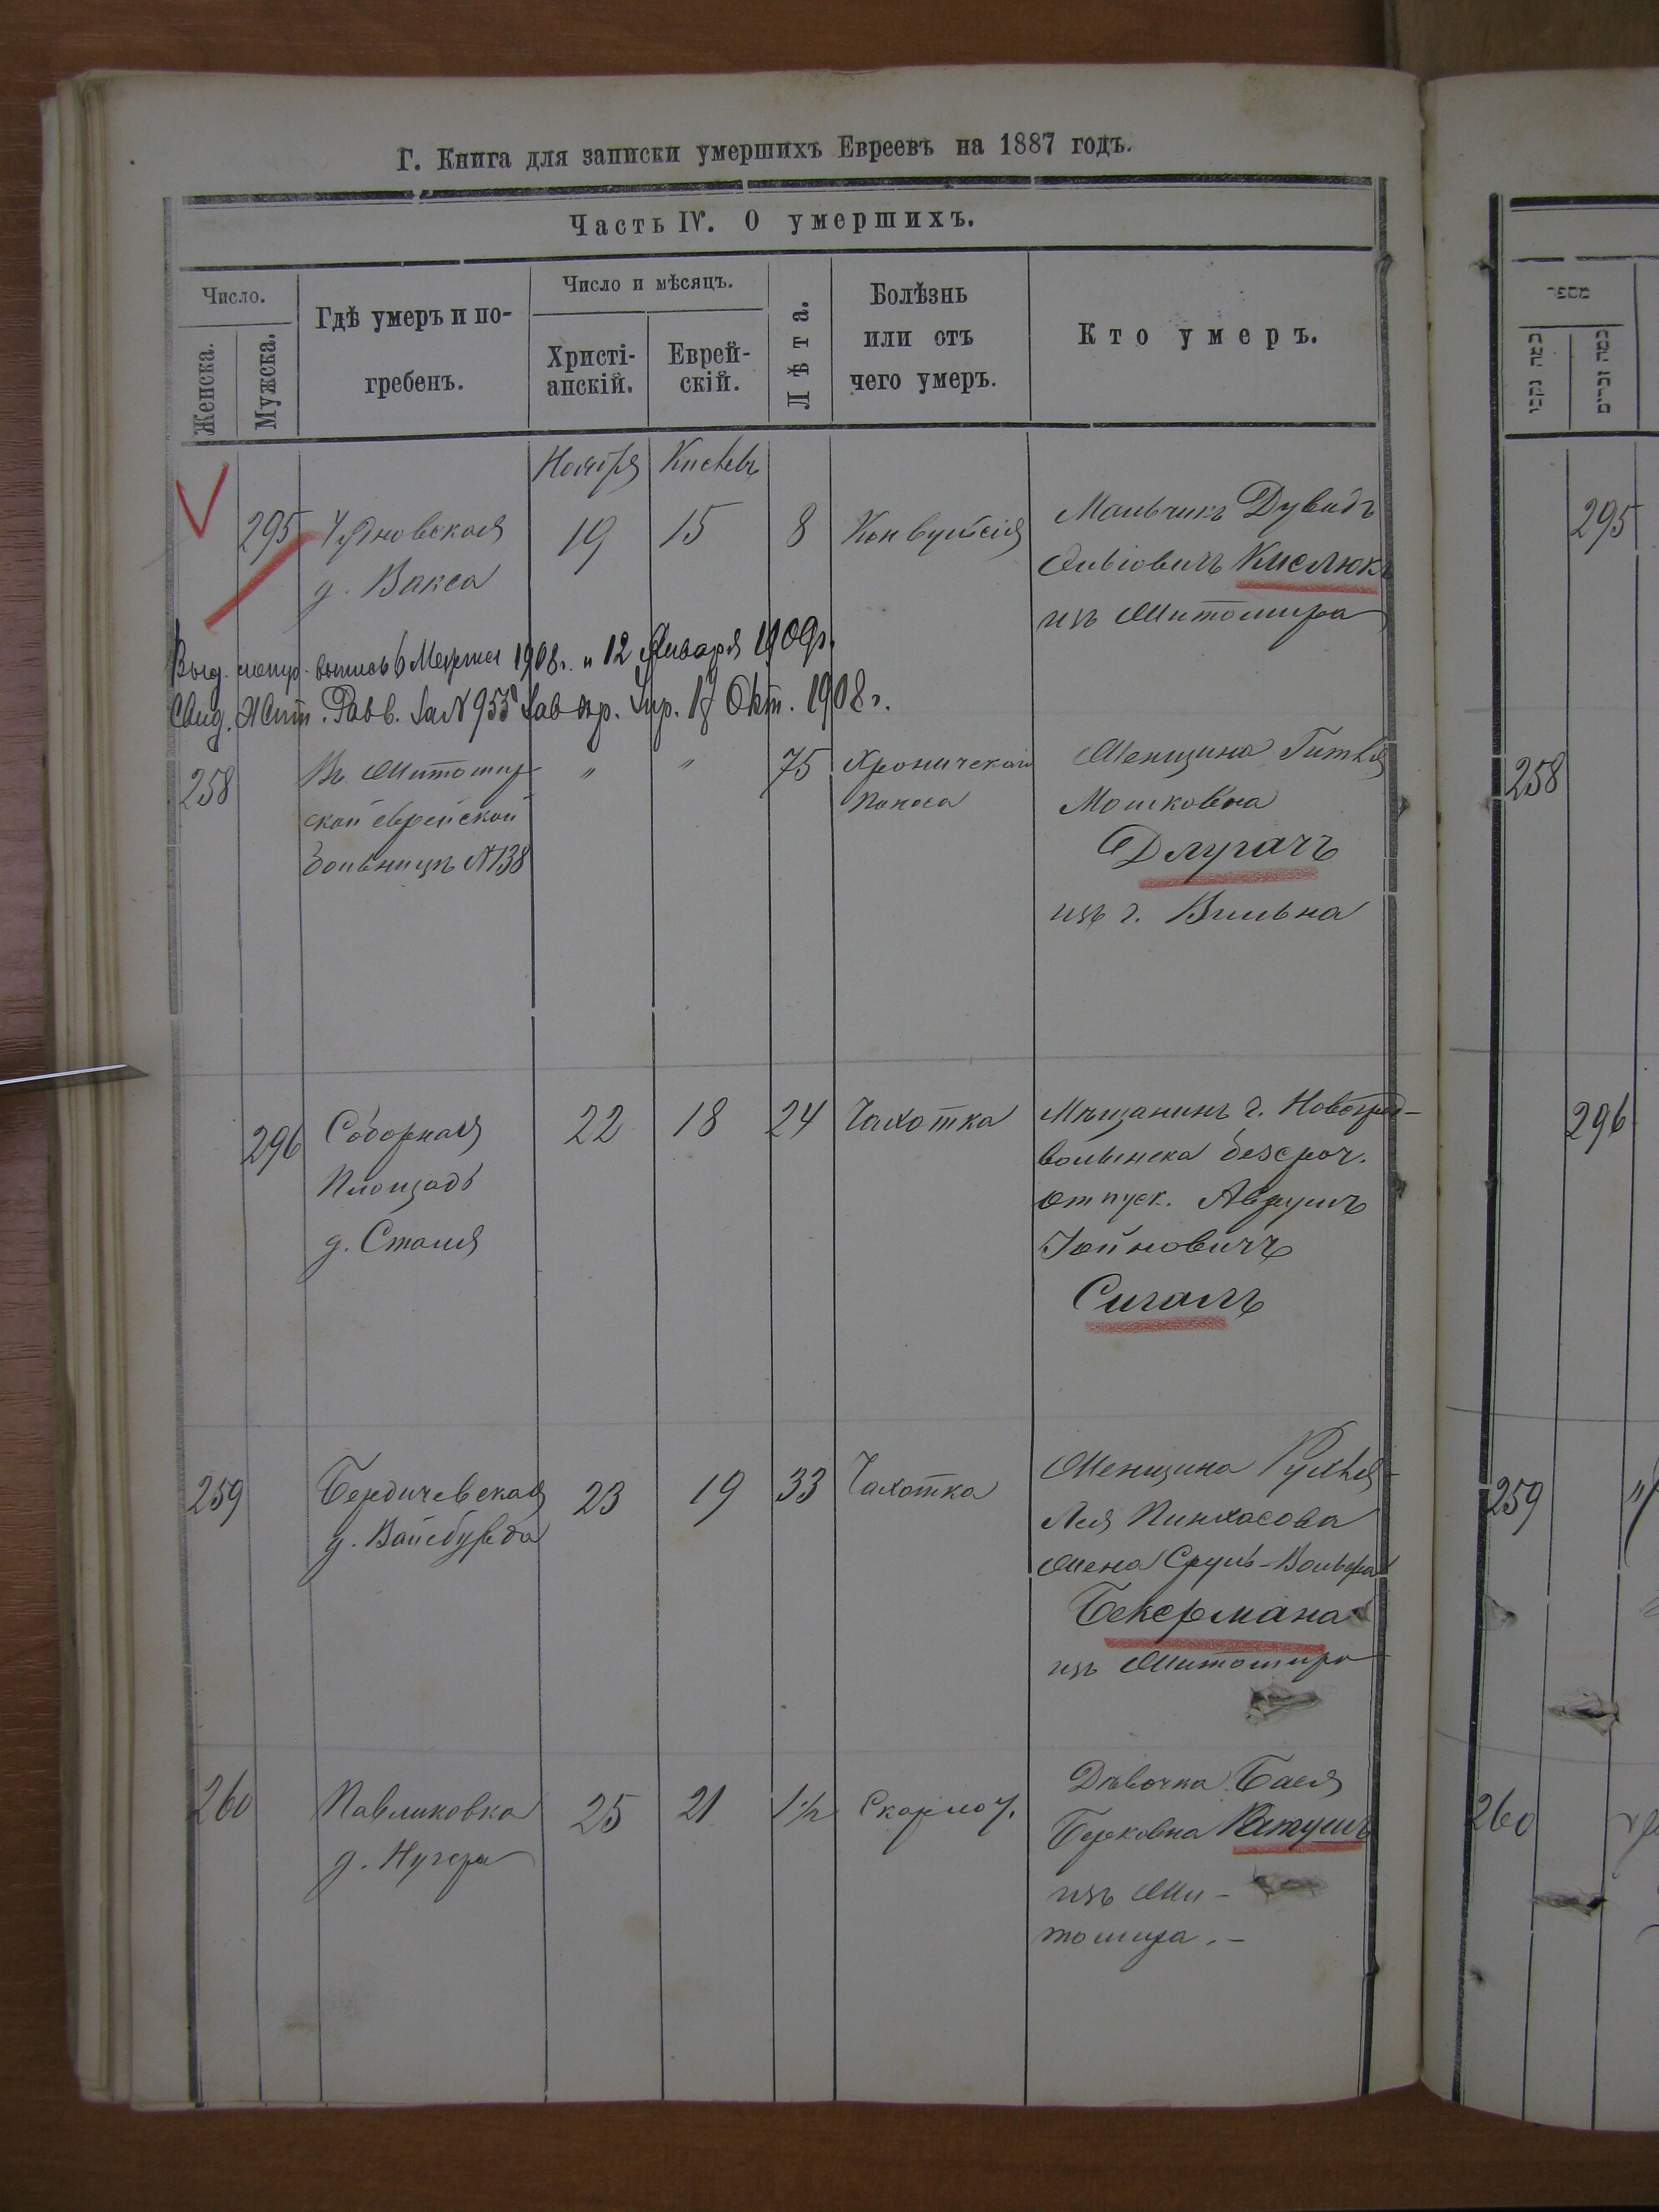 Г. Книга для записки умершихъ Евреевъ на 1887 годъ.
Часть IV. О умершихъ.
Число.
Женска.
Мужска.
Гдѣ умеръ и по-
гребенъ.
Число и мѣсяцъ.
Христі-
анскій.
Еврей-
скій.
Лѣта.
Болѣзнь
или отъ
чего умеръ.
Кто умеръ.
Ноября
Кислевъ
295
Чудновская
д. Вакса
19
15
8
Конвульсія
Мальчикъ Дувидъ
Кислюкъ
изъ Житомира
Выд. метр. выпись 6 Марта 1908 г. и 12 Января 1909 г.
Свид. Жит. Равв. за N 955
17 Окт. 1908 г.
258
Въ Житомир-
ской еврейской
больницѣ N 138
"
"
75
Хроническаго
поноса
Женщина Гитля
Мошковна
Длугачъ
изъ г. Вильна
296
Соборная
площадь
д. Столя
22
18
24
Чахотка
Мѣщанинъ г. Новоград-
волынска безсроч.
отпуск. Аврумъ
Іойновичъ
Сигалъ
259
Бердичевская
д. Вайсбурда
23
19
33
Чахотка
Женщина Рухля-
Лея Пинхасова
жена Сруль-Вольфа
Бекермана
изъ Житомира
260
Павликовка
25
21
1½
Скарлат.
Дѣвочка Бася
Берковна
изъ Жи-
томира.-
מספר
295
258
296
259
260